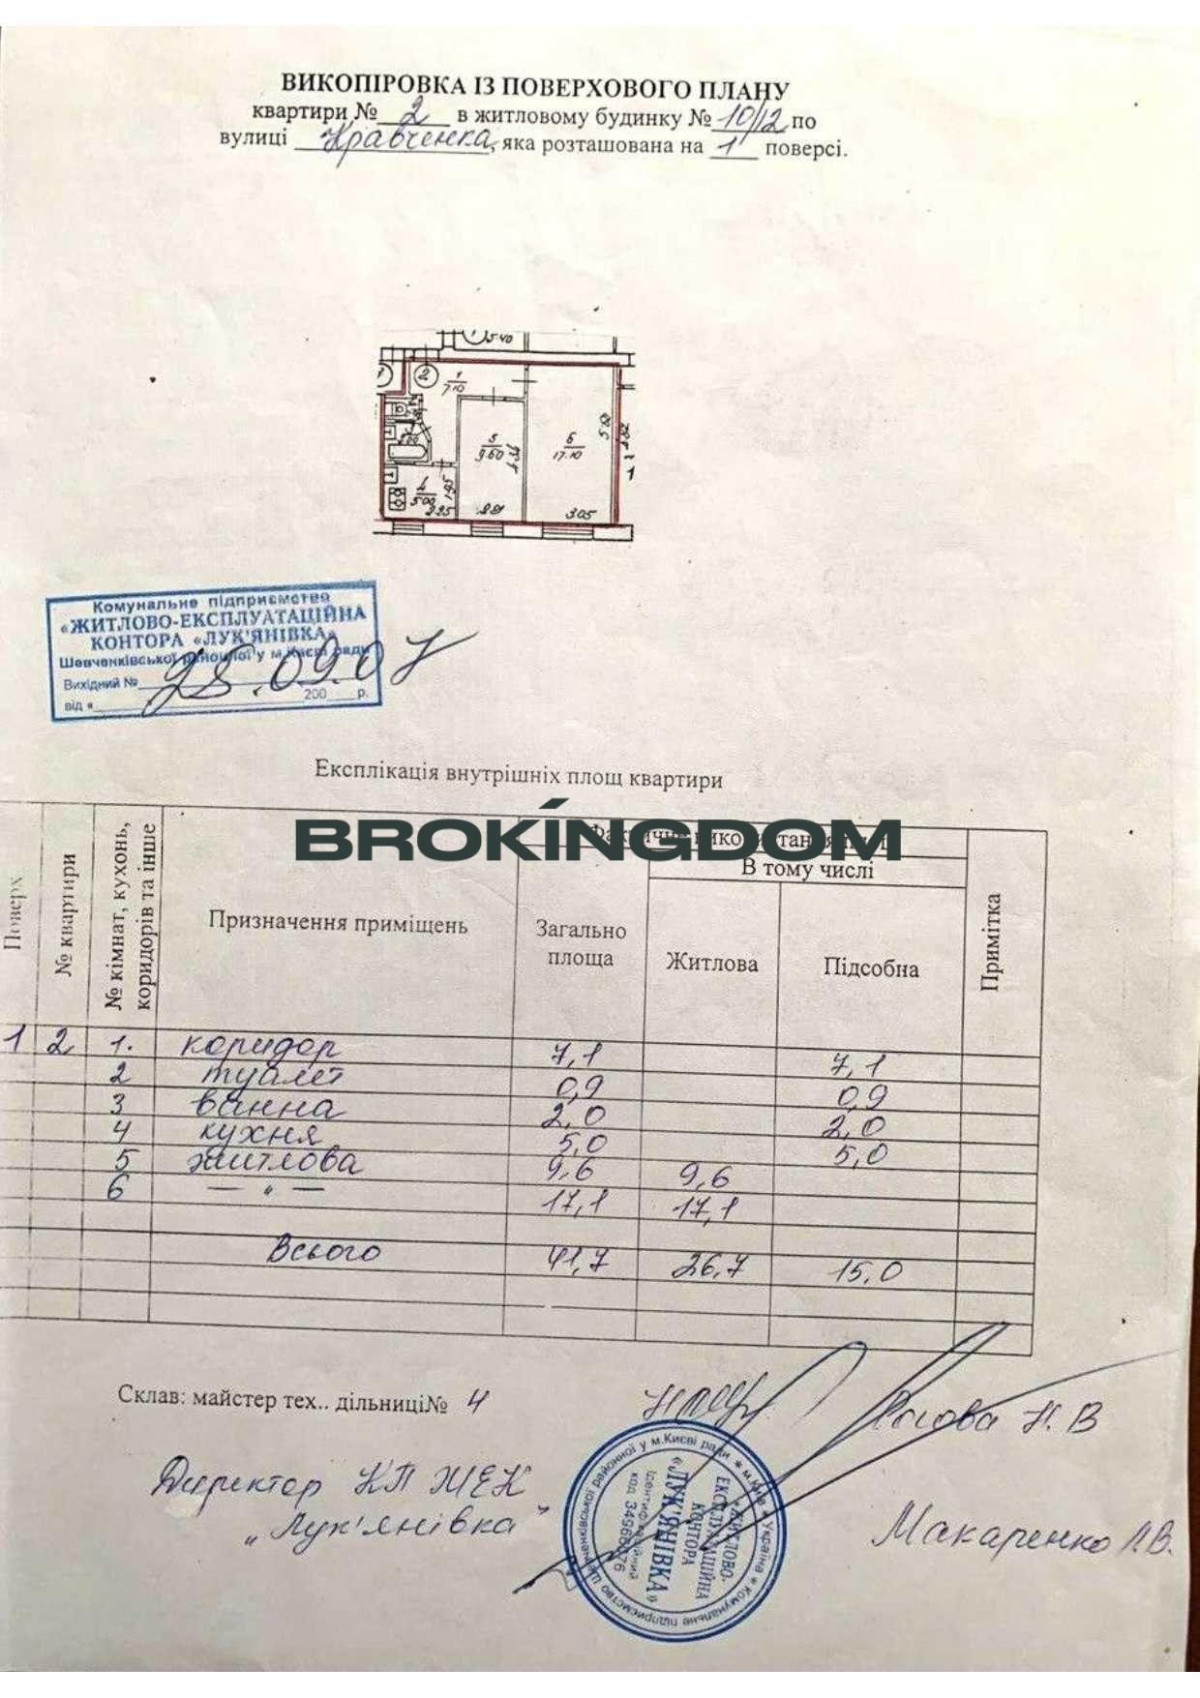 ВИКОПІРОВКА ІЗ ПОВЕРХОВОГО ПЛАНУ
квартири № 2 в житловому будинку № 10/12 по
вулиці Кравченка, яка розташована на 1 поверсі.
5.40
1
2
1
7.10
5
9.60
6
17.10
4
5.00
1.95
2.25
3.05
1
Комунальне підприємство
«ЖИТЛОВО-ЕКСПЛУАТАЦІЙНА
КОНТОРА «ЛУК'ЯНІВКА»
Шевченківської районної у м.Києві ради
Вихідний №
25.09.07
від « 200 р.
Експлікація внутрішніх площ квартири
BROKINGDOM
Поверх
№ квартири
№ кімнат, кухонь,
коридорів та інше
Призначення приміщень
Загально
площа
В тому числі
Житлова
Підсобна
Примітка
1 2 1. коридор 7,1 7,1
2 туалет 0,9 0,9
3 ванна 2,0 2,0
4 кухня 5,0 5,0
5 житлова 9,6 9,6
6 — " — 17,1 17,1
Всього 41,7 26,7 15,0
Склав: майстер тех.. дільниці№ 4
Н. В
Директор КП ЖЕК
„Лук'янівка"
Макаренко Л.В.
Україна * м.Київ * Комунальне підприємство Шевченківської районної у м.Києві ради *
«ЖИТЛОВО-
ЕКСПЛУАТАЦІЙНА
КОНТОРА
«ЛУК'ЯНІВКА»
Ідентифікаційний
код